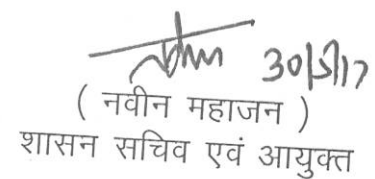 30/5/17
( नवीन महाजन )
शासन सचिव एवं आयुक्त